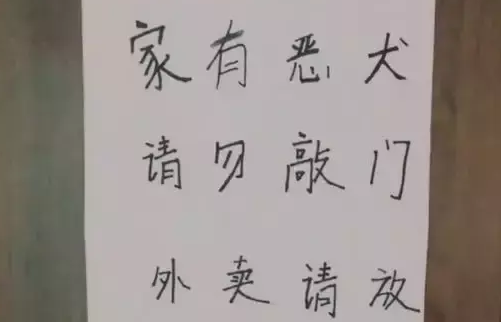 家有恶犬
请勿敲门
外卖请放